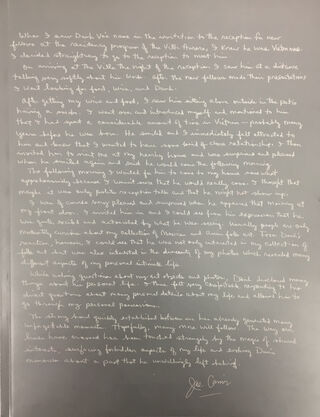 When I saw Danh Vo's name in the invitation to the reception for new
fellows at the residency program of the Villa Aurora, I knew he was Vietnamese.
I decided straightaway to go to the reception to meet him.
On arriving at the Villa the night of the reception I saw him at a distance
talking very softly about his work. After the new fellows made their presentations
I went looking for food, wine, and Danh.
After getting my wine and food, I saw him sitting alone outside in the patio
having a smoke. I went over and introduced myself and mentioned to him
that I had spent a considerable amount of time in Vietnam – probably many
years before he was born. He smiled and I immediately felt attracted to
him and knew that I wanted to have some kind of close relationship. I then
invited him to visit me at my nearby home and was surprised and pleased
when he smiled again and said he would come the following morning.
The following morning I waited for him to come to my house somewhat
apprehensively because I wasn't sure that he would really come. I thought that
maybe it was only polite reception talk and that he might not show up.
I was of course very pleased and surprised when he appeared that morning at
my front door. I invited him in and I could see from his expression that he
was quite excited and astonished by what he was seeing. Usually people are only
modestly curious about my collection of Mexican and Asian folk art. From Danh's
reaction, however, I could see that he was not only interested in my collection of
folk art but was also interested in the diversity of my photos which revealed many
different aspects of my personal intimate life.
While asking questions about my art objects and photos, Danh disclosed many
things about his personal life. I thus felt very comfortable responding to his
direct questions about many personal details about my life and allowed him to
go through my personal possessions.
The strong bond quickly established between us has already generated many
unforgettable moments. Hopefully, many more will follow. The way our
lives have crossed has been touched strangely by the magic of shared
interests, resurfacing forbidden aspects of my life and evoking Danh's
memories about a past that he unwillingly left behind.
Joe Carrier